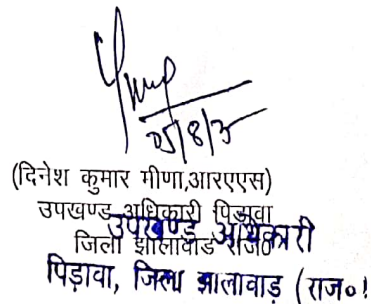 05/8/25
(दिनेश कुमार मीणा,आरएएस)
उपखण्ड अधिकारी पिडावा
जिला झालावाड राज०
उपखण्ड अधिकारी
पिड़ावा, जिला झालावाड़ (राज०)